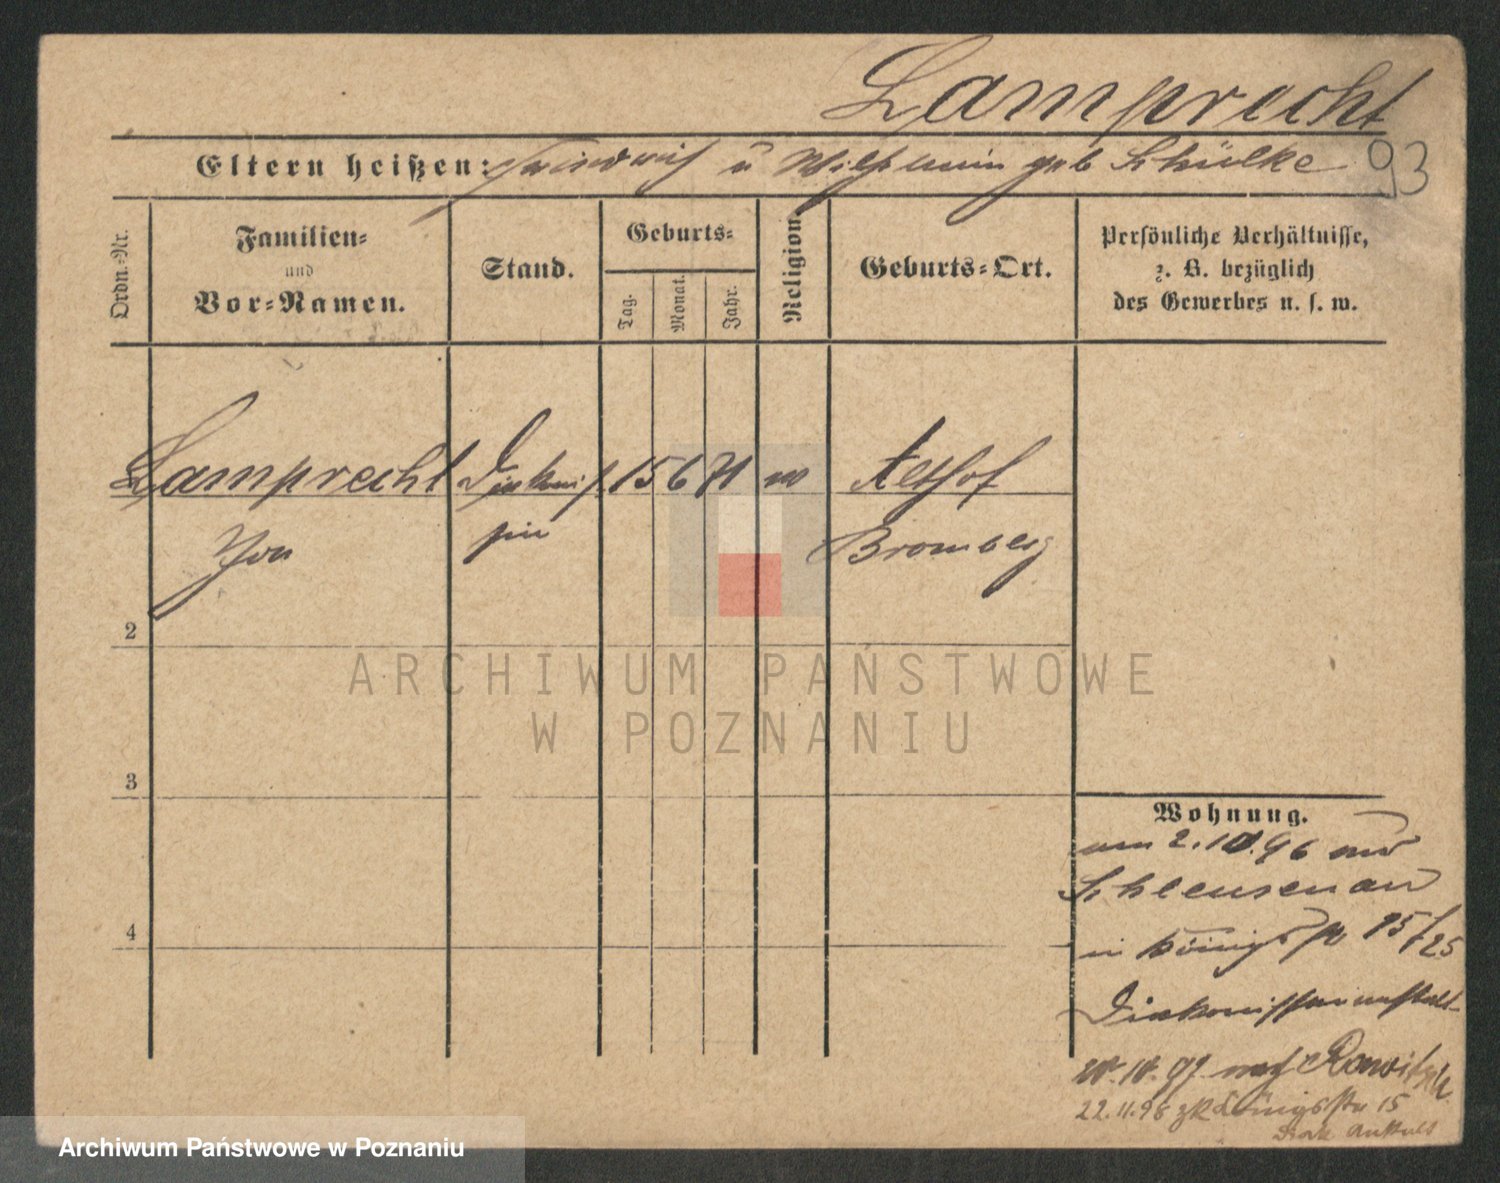 Lamprecht
Eltern heißen: Friedrich u Wilhelmin geb Schülke 93
Ordn.-Nr.
Familien-
und
Vor-Namen.
Stand.
Geburts-
Tag.
Monat.
Jahr.
Religion.
Geburts-Ort.
Persönliche Verhältnisse,
z. B. bezüglich
des Gewerbes u. s. w.
Lamprecht Diakonis 15 6 71 Althof
sin Bromberg
2
3
4
Wohnung.
am 2.10.96 aus
Schleusenau
in Königstr 15/25
Diakonissenanstalt
97 nach
22.11.98 Königsstr 15
Diak Anstalt
ARCHIWUM PAŃSTWOWE
W POZNANIU
Archiwum Państwowe w Poznaniu